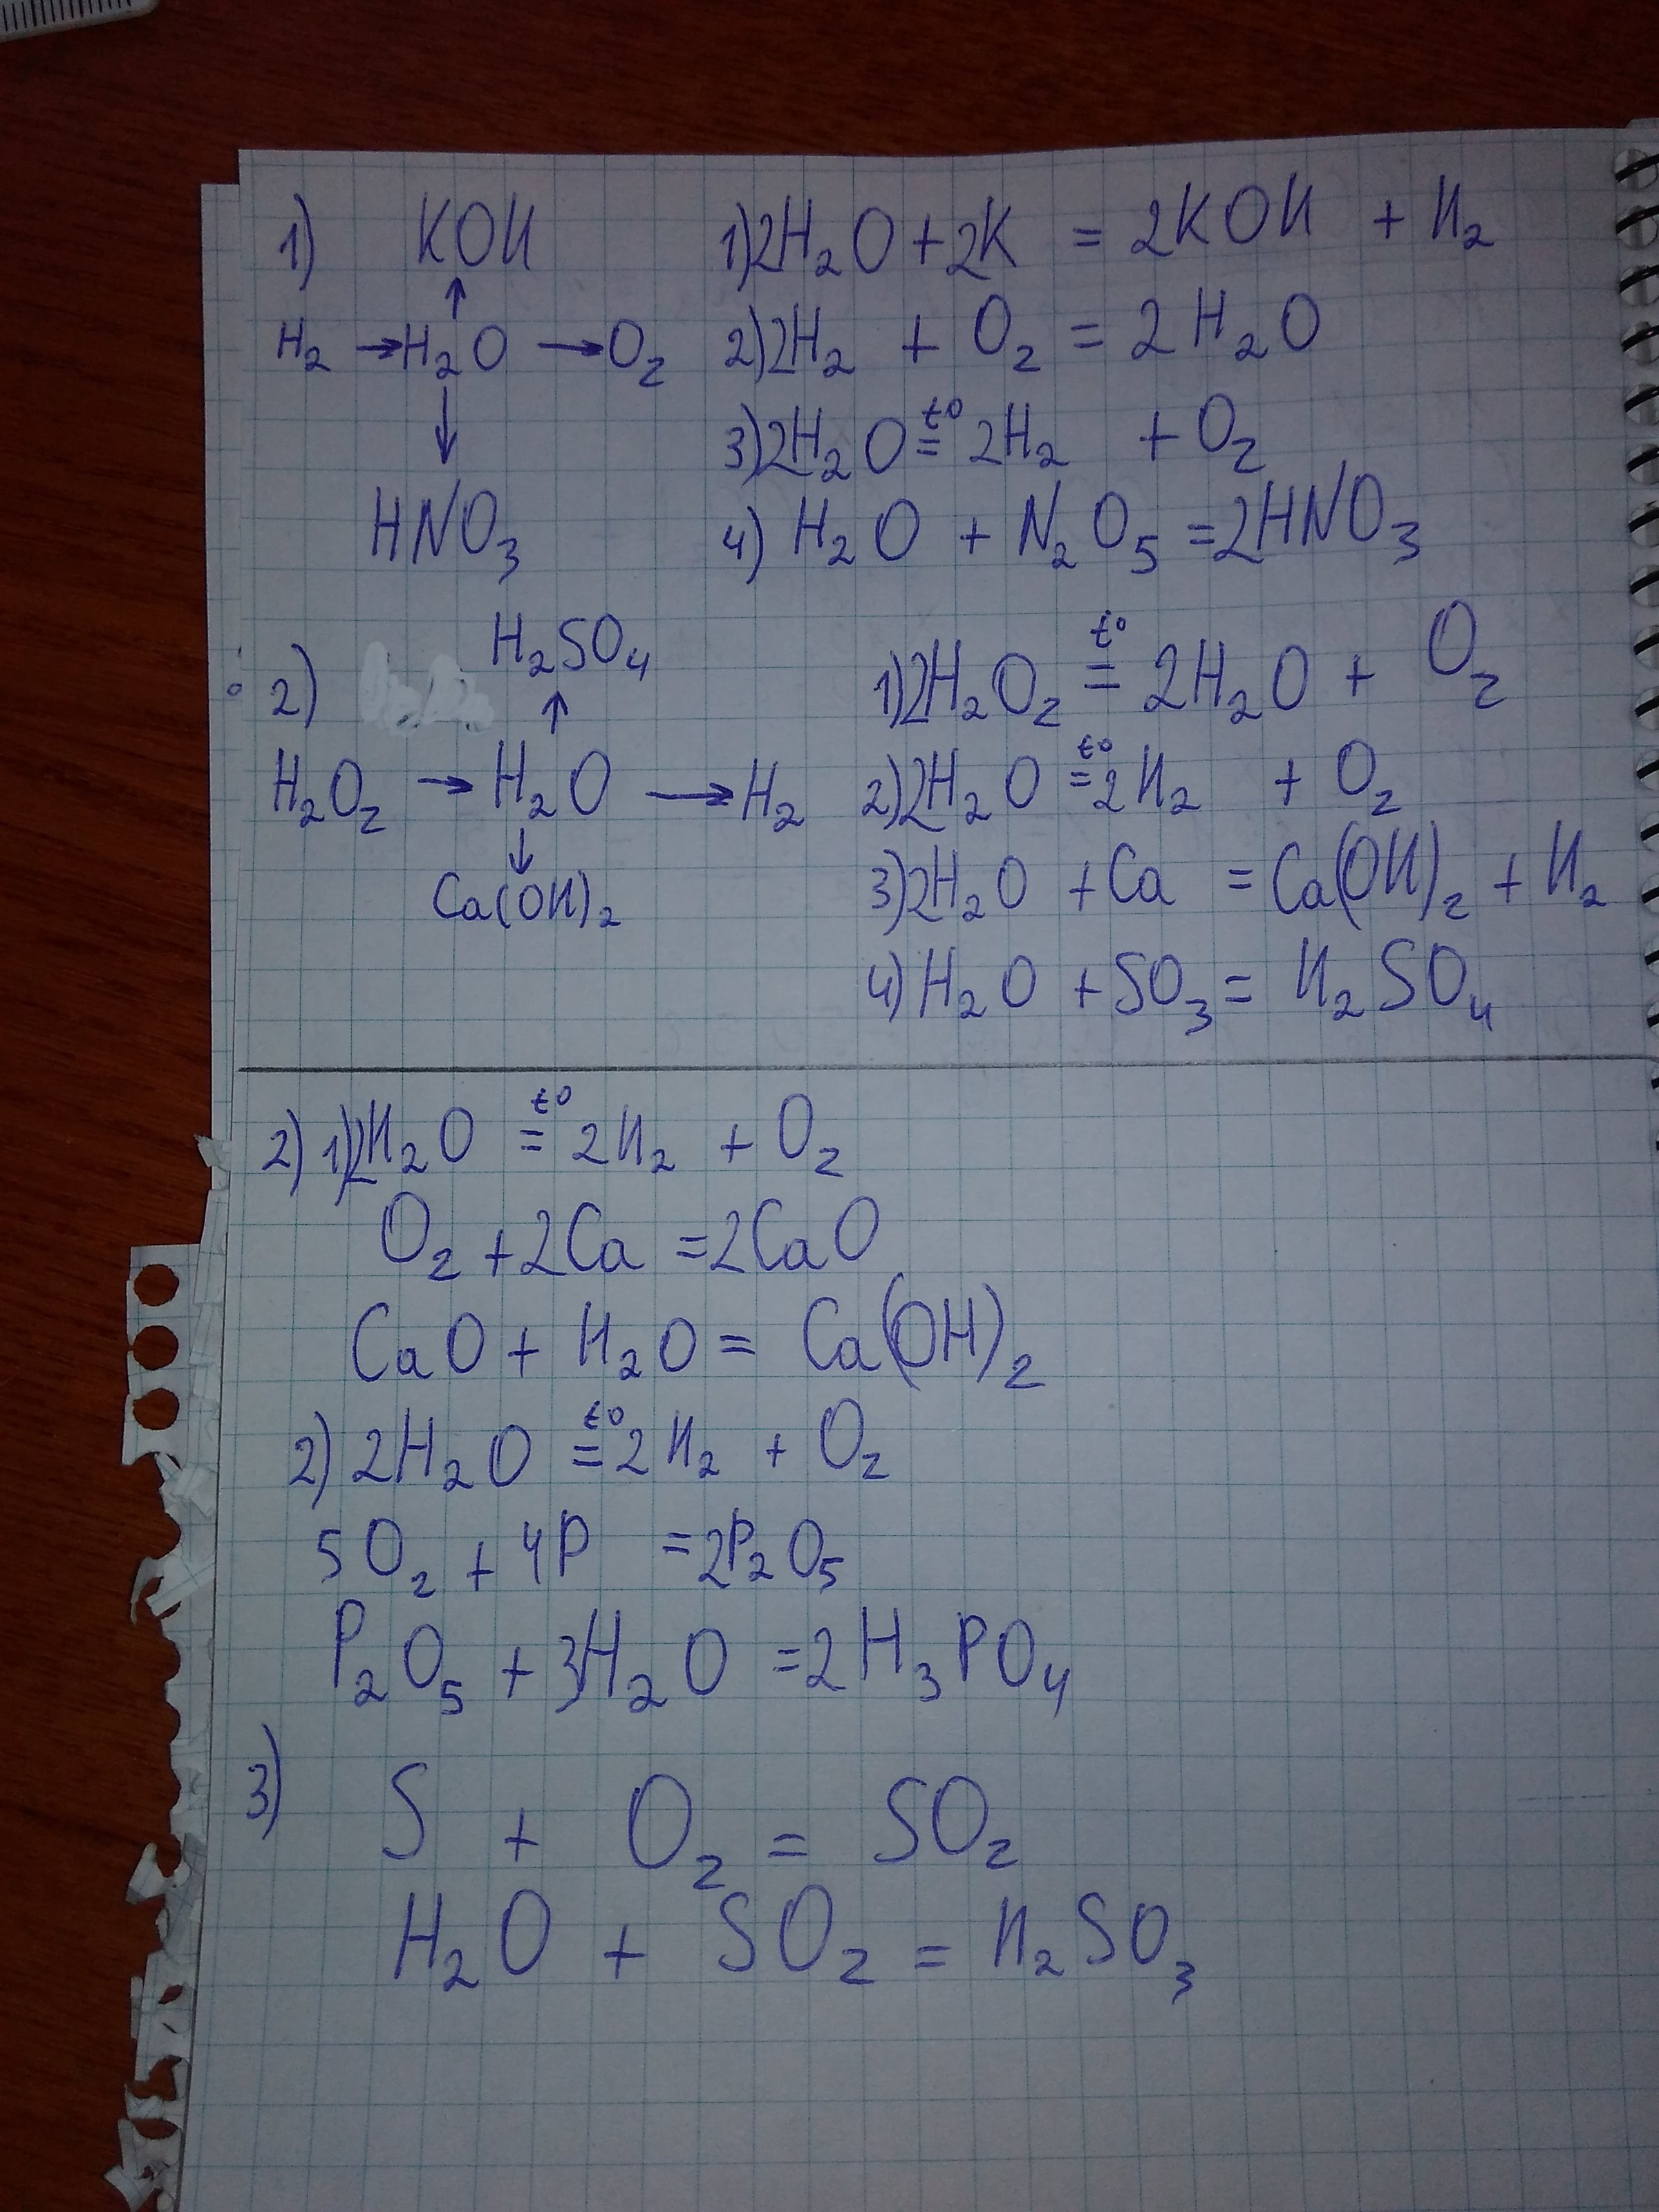 1) KOH
↑
H₂ → H₂O → O₂
↓
HNO₃
1) 2H₂O + 2K = 2KOH + H₂
2) 2H₂ + O₂ = 2H₂O
3) 2H₂O =t° 2H₂ + O₂
4) H₂O + N₂O₅ = 2HNO₃
2) H₂SO₄
↑
H₂O₂ → H₂O → H₂
↓
Ca(OH)₂
1) 2H₂O₂ =t° 2H₂O + O₂
2) 2H₂O =t° 2H₂ + O₂
3) 2H₂O + Ca = Ca(OH)₂ + H₂
4) H₂O + SO₃ = H₂SO₄
2) 1) 2H₂O =t° 2H₂ + O₂
O₂ + 2Ca = 2CaO
CaO + H₂O = Ca(OH)₂
2) 2H₂O =t° 2H₂ + O₂
5O₂ + 4P = 2P₂O₅
P₂O₅ + 3H₂O = 2H₃PO₄
3) S + O₂ = SO₂
H₂O + SO₂ = H₂SO₃